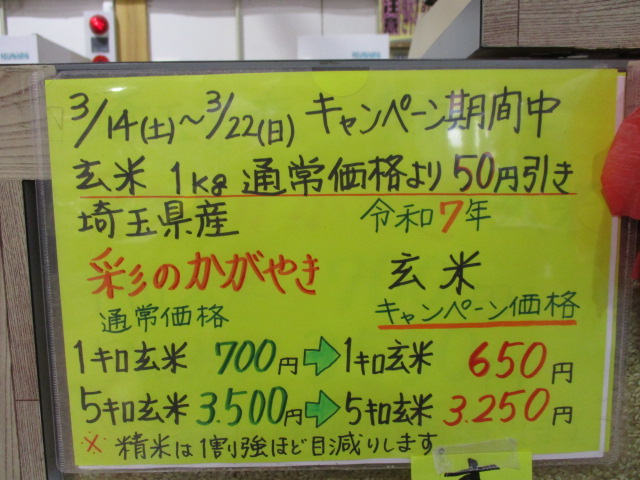 3/14(土)~3/22(日) キャンペーン期間中
玄米 1kg 通常価格より 50円引き
埼玉県産 令和7年
彩のかがやき 玄米
通常価格 キャンペーン価格
1キロ玄米 700円 → 1キロ玄米 650円
5キロ玄米 3.500円 → 5キロ玄米 3.250円
※ 精米は1割強ほど目減りします